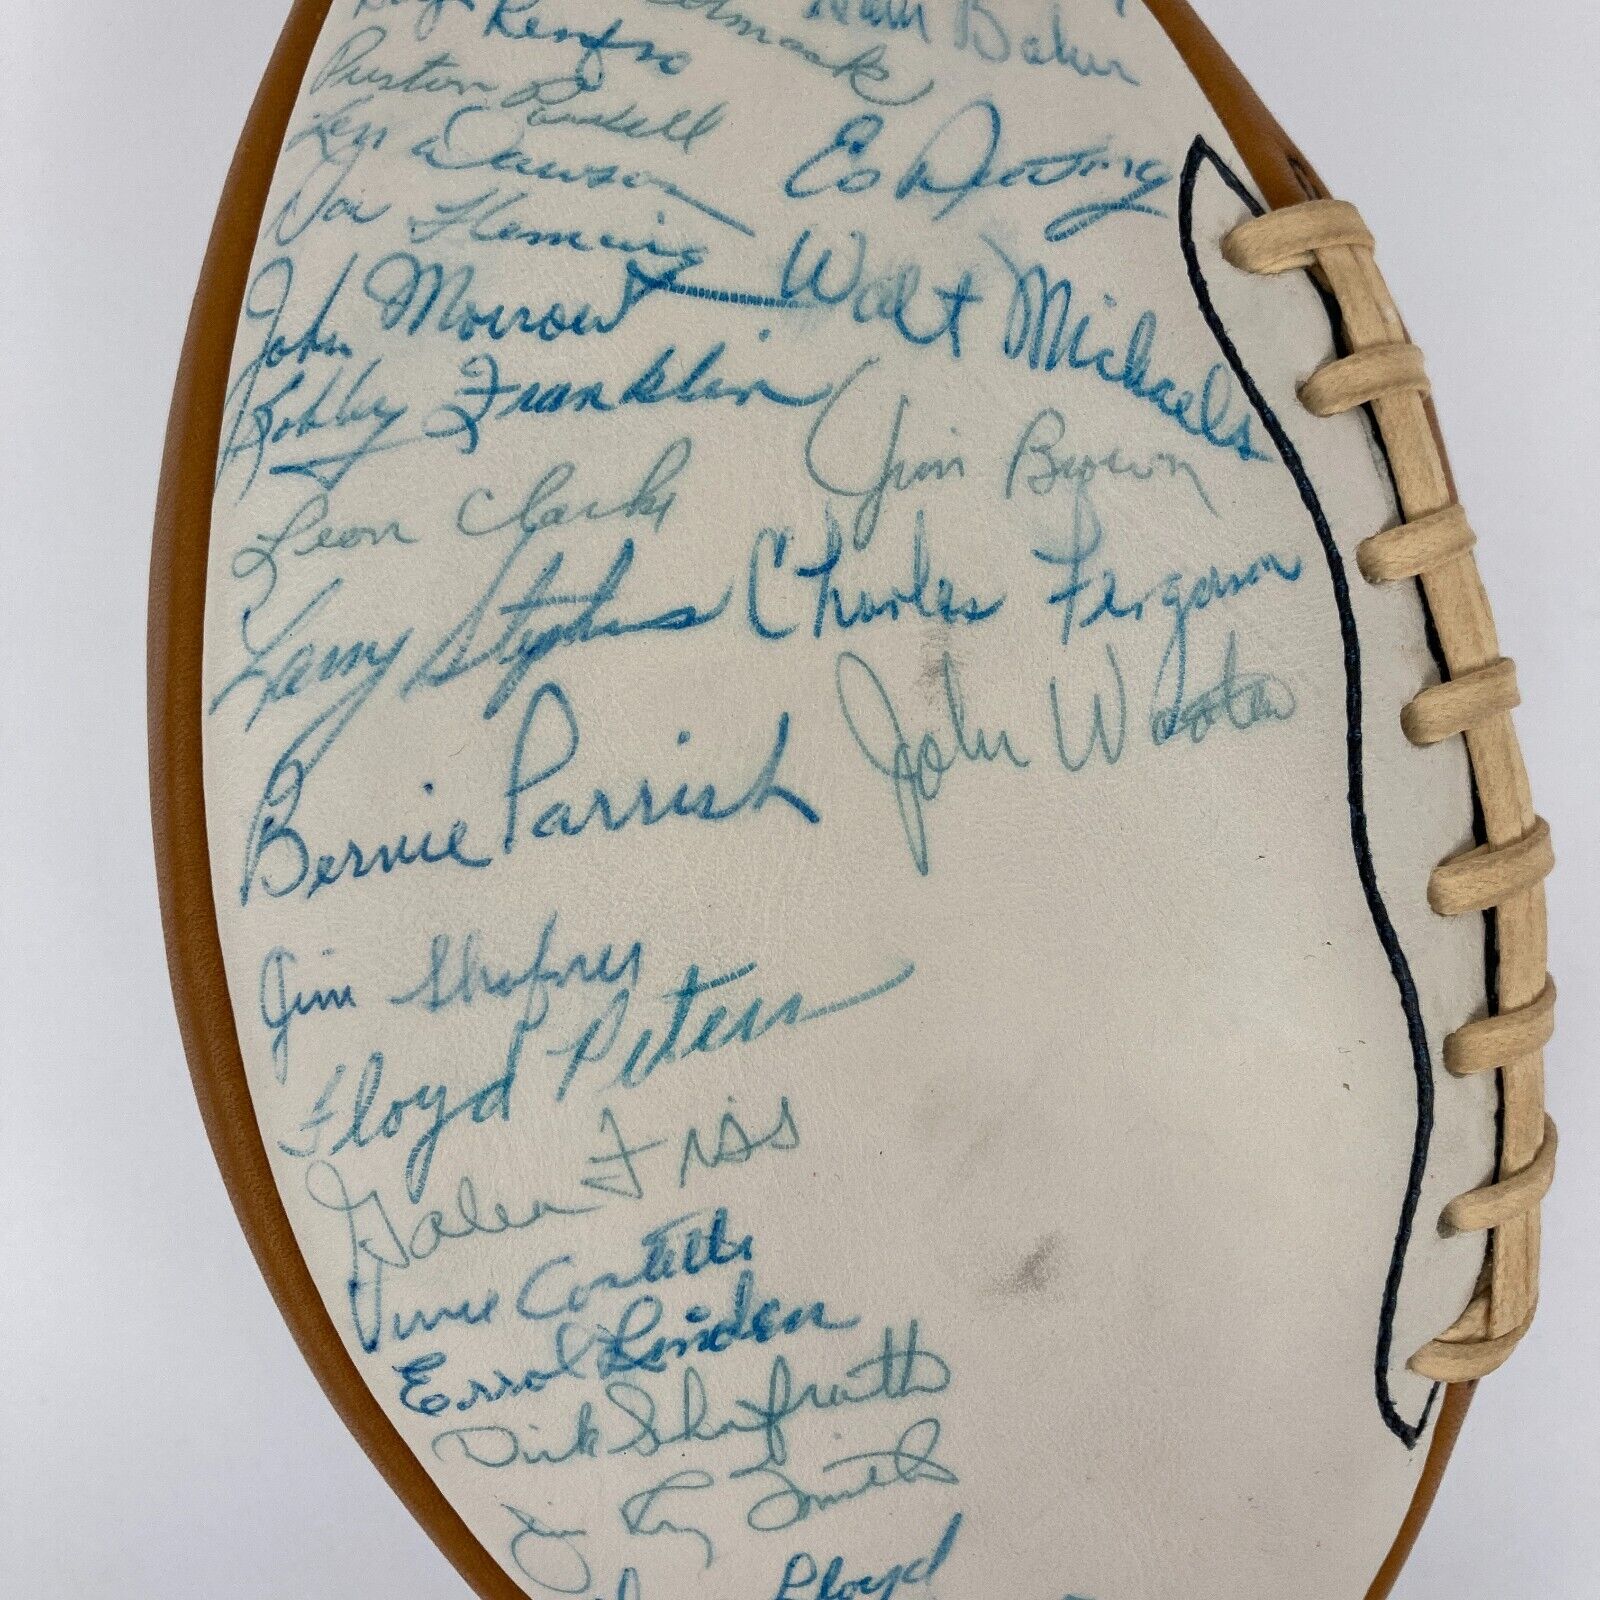 Ray Renfro
Sam Baker
Preston Powell
Len Dawson
Don Fleming
Walt Michaels
John Morrow
Bobby Franklin
Jim Brown
Leon Clarke
Charles Ferguson
Larry Stephens
John Wooten
Bernie Parrish
Jim Shofner
Floyd Peters
Galen Fiss
Vince Costello
Errol Linden
Dick Shafrath
Jim Ray Smith
Lloyd